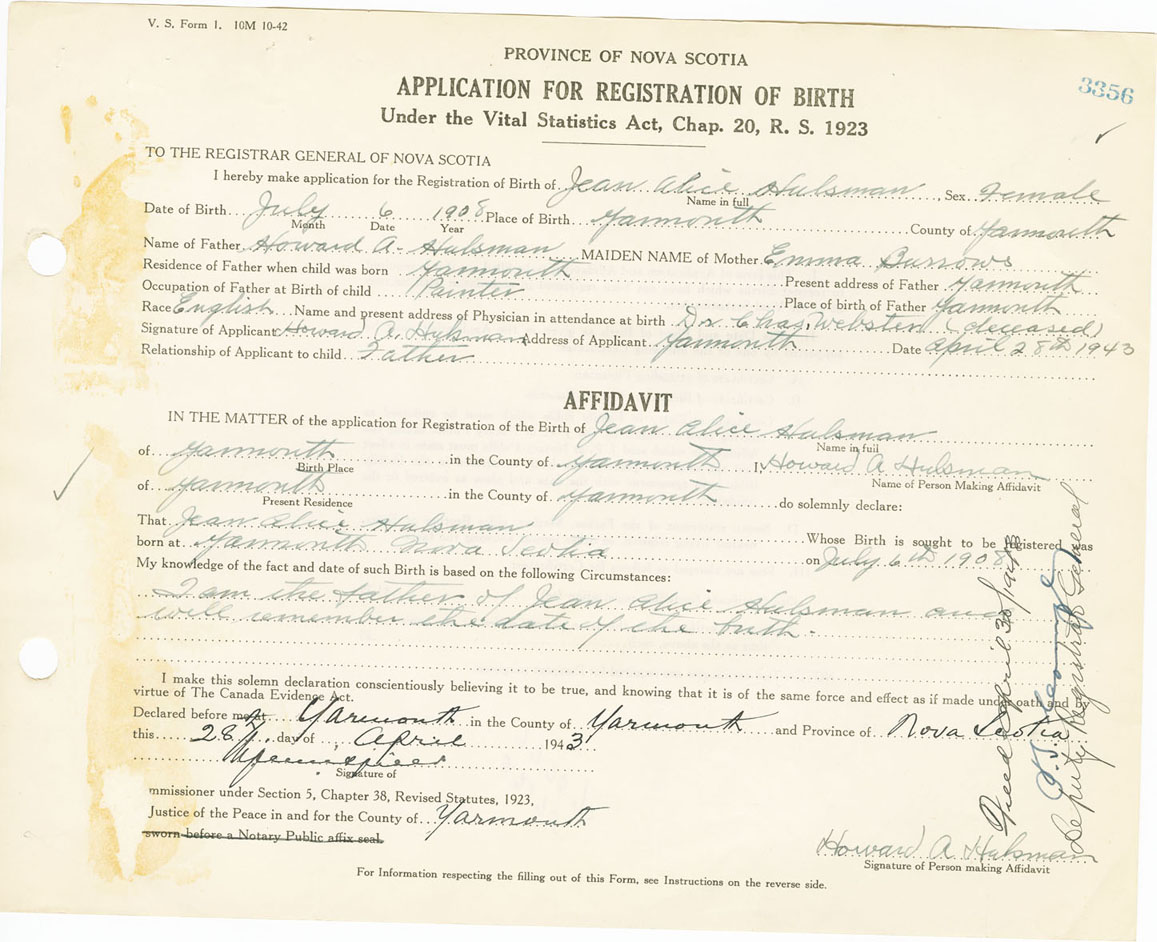 V. S. Form 1. 10M 10-42
PROVINCE OF NOVA SCOTIA
APPLICATION FOR REGISTRATION OF BIRTH
3356
Under the Vital Statistics Act, Chap. 20, R. S. 1923
TO THE REGISTRAR GENERAL OF NOVA SCOTIA
I hereby make application for the Registration of Birth of Jean Alice Hulsman, Sex Female
Name in full
Date of Birth July 6 1908 Place of Birth Yarmouth County of Yarmouth
Month Date Year
Name of Father Howard A. Hulsman MAIDEN NAME of Mother Emma Burrows
Residence of Father when child was born Yarmouth Present address of Father Yarmouth
Occupation of Father at Birth of child Painter Place of birth of Father Yarmouth
Race English Name and present address of Physician in attendance at birth Dr Chas. Webster (deceased)
Signature of Applicant Howard A. Hulsman Address of Applicant Yarmouth Date April 28th 1943
Relationship of Applicant to child Father
AFFIDAVIT
IN THE MATTER of the application for Registration of the Birth of Jean Alice Hulsman
Name in full
of Yarmouth in the County of Yarmouth I, Howard A Hulsman
Birth Place Name of Person Making Affidavit
of Yarmouth in the County of Yarmouth do solemnly declare:
Present Residence
That Jean Alice Hulsman Whose Birth is sought to be registered was
born at Yarmouth Nova Scotia on July 6th 1908
My knowledge of the fact and date of such Birth is based on the following Circumstances:
I am the father of Jean Alice Hulsman and
will remember the date of the birth.
I make this solemn declaration conscientiously believing it to be true, and knowing that it is of the same force and effect as if made under oath and by
virtue of The Canada Evidence Act.
Declared before me at Yarmouth in the County of Yarmouth and Province of Nova Scotia
this 28 day of April 1943
Signature of
mmissioner under Section 5, Chapter 38, Revised Statutes, 1923,
Justice of the Peace in and for the County of Yarmouth
sworn before a Notary Public affix seal.
Howard A Hulsman
Signature of Person making Affidavit
For Information respecting the filling out of this Form, see Instructions on the reverse side.
Filed April 30/1943
Deputy Registrar General